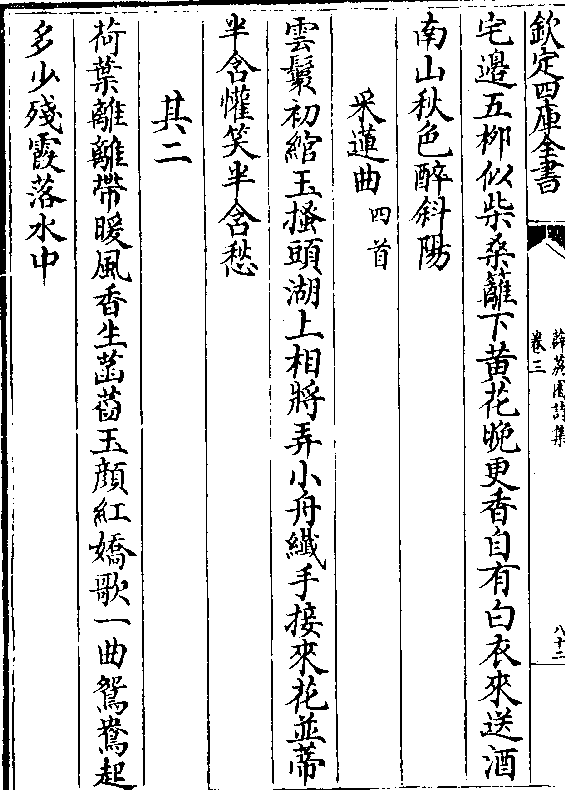 欽定四庫全書
薛荔園詩集
卷三
八十二
宅邊五柳似柴桑籬下黄花晚更香自有白衣來送酒
南山秋色醉斜陽
采蓮曲四首
雲鬟初綰玉搔頭湖上相將弄小舟纎手接來花並蒂
半含懽笑半含愁
其二
荷葉離離帶暖風香生菡萏玉顔紅嬌歌一曲鴛鴦起
多少殘霞落水中